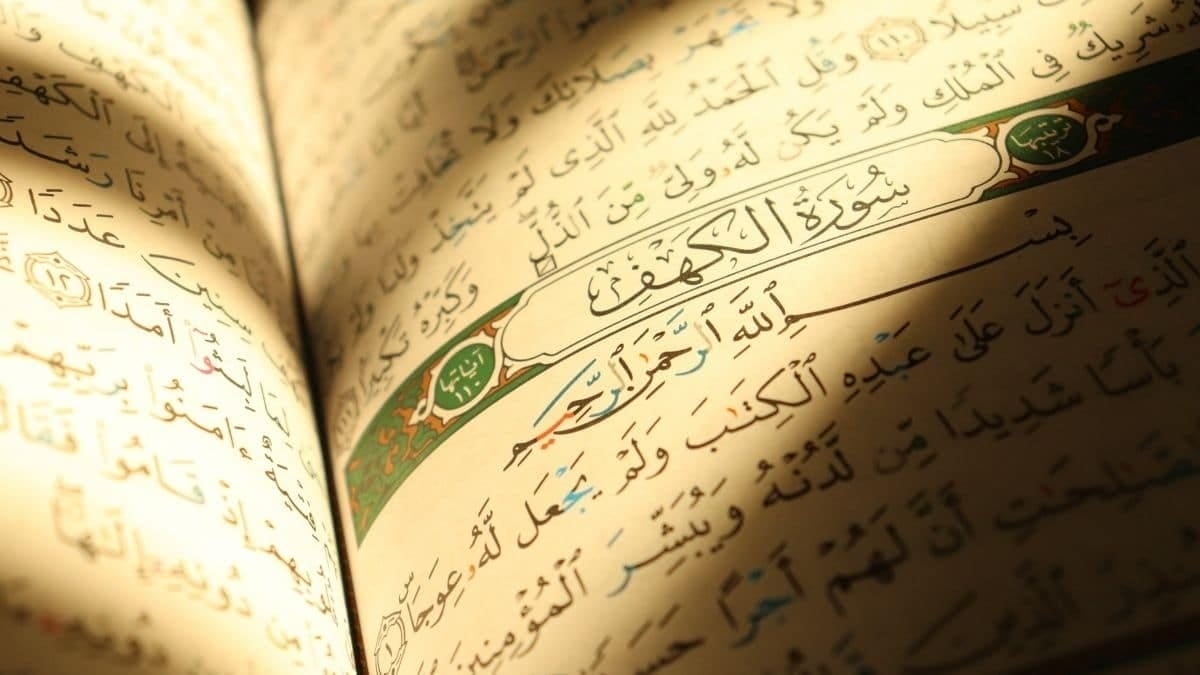 وَلَا تَجْهَرْ بِصَلَاتِكَ وَلَا تُخَافِتْ
سَبِيلًا ١١٠ وَقُلِ ٱلْحَمْدُ لِلَّهِ ٱلَّذِى لَمْ يَتَّخِذْ وَلَدًا وَلَمْ
شَرِيكٌ فِى ٱلْمُلْكِ وَلَمْ يَكُن لَّهُۥ وَلِىٌّ مِّنَ ٱلذُّلِّ وَكَبِّرْهُ تَكْبِيرًا
ترتيبها ١٨ سُورَةُ الكَهْفِ آياتها ١١٠
بِسْمِ ٱللَّهِ ٱلرَّحْمَٰنِ ٱلرَّحِيمِ
ٱلَّذِىٓ أَنزَلَ عَلَىٰ عَبْدِهِ ٱلْكِتَٰبَ وَلَمْ يَجْعَل لَّهُۥ عِوَجَاۜ ١
بَأْسًا شَدِيدًا مِّن لَّدُنْهُ وَيُبَشِّرَ ٱلْمُؤْمِنِينَ
ٱلصَّٰلِحَٰتِ أَنَّ لَهُمْ أَجْرًا
ٱلَّذِينَ
إِلَى ٱلْكَهْفِ
مِنْ أَمْرِنَا رَشَدًا
سِنِينَ عَدَدًا
لِمَا لَبِثُوٓا۟ أَمَدًا ١٢
فِتْيَةٌ ءَامَنُوا۟ بِرَبِّهِمْ
إِذْ قَامُوا۟ فَقَالُوا۟
مِن دُونِهِۦٓ إِلَٰهًا